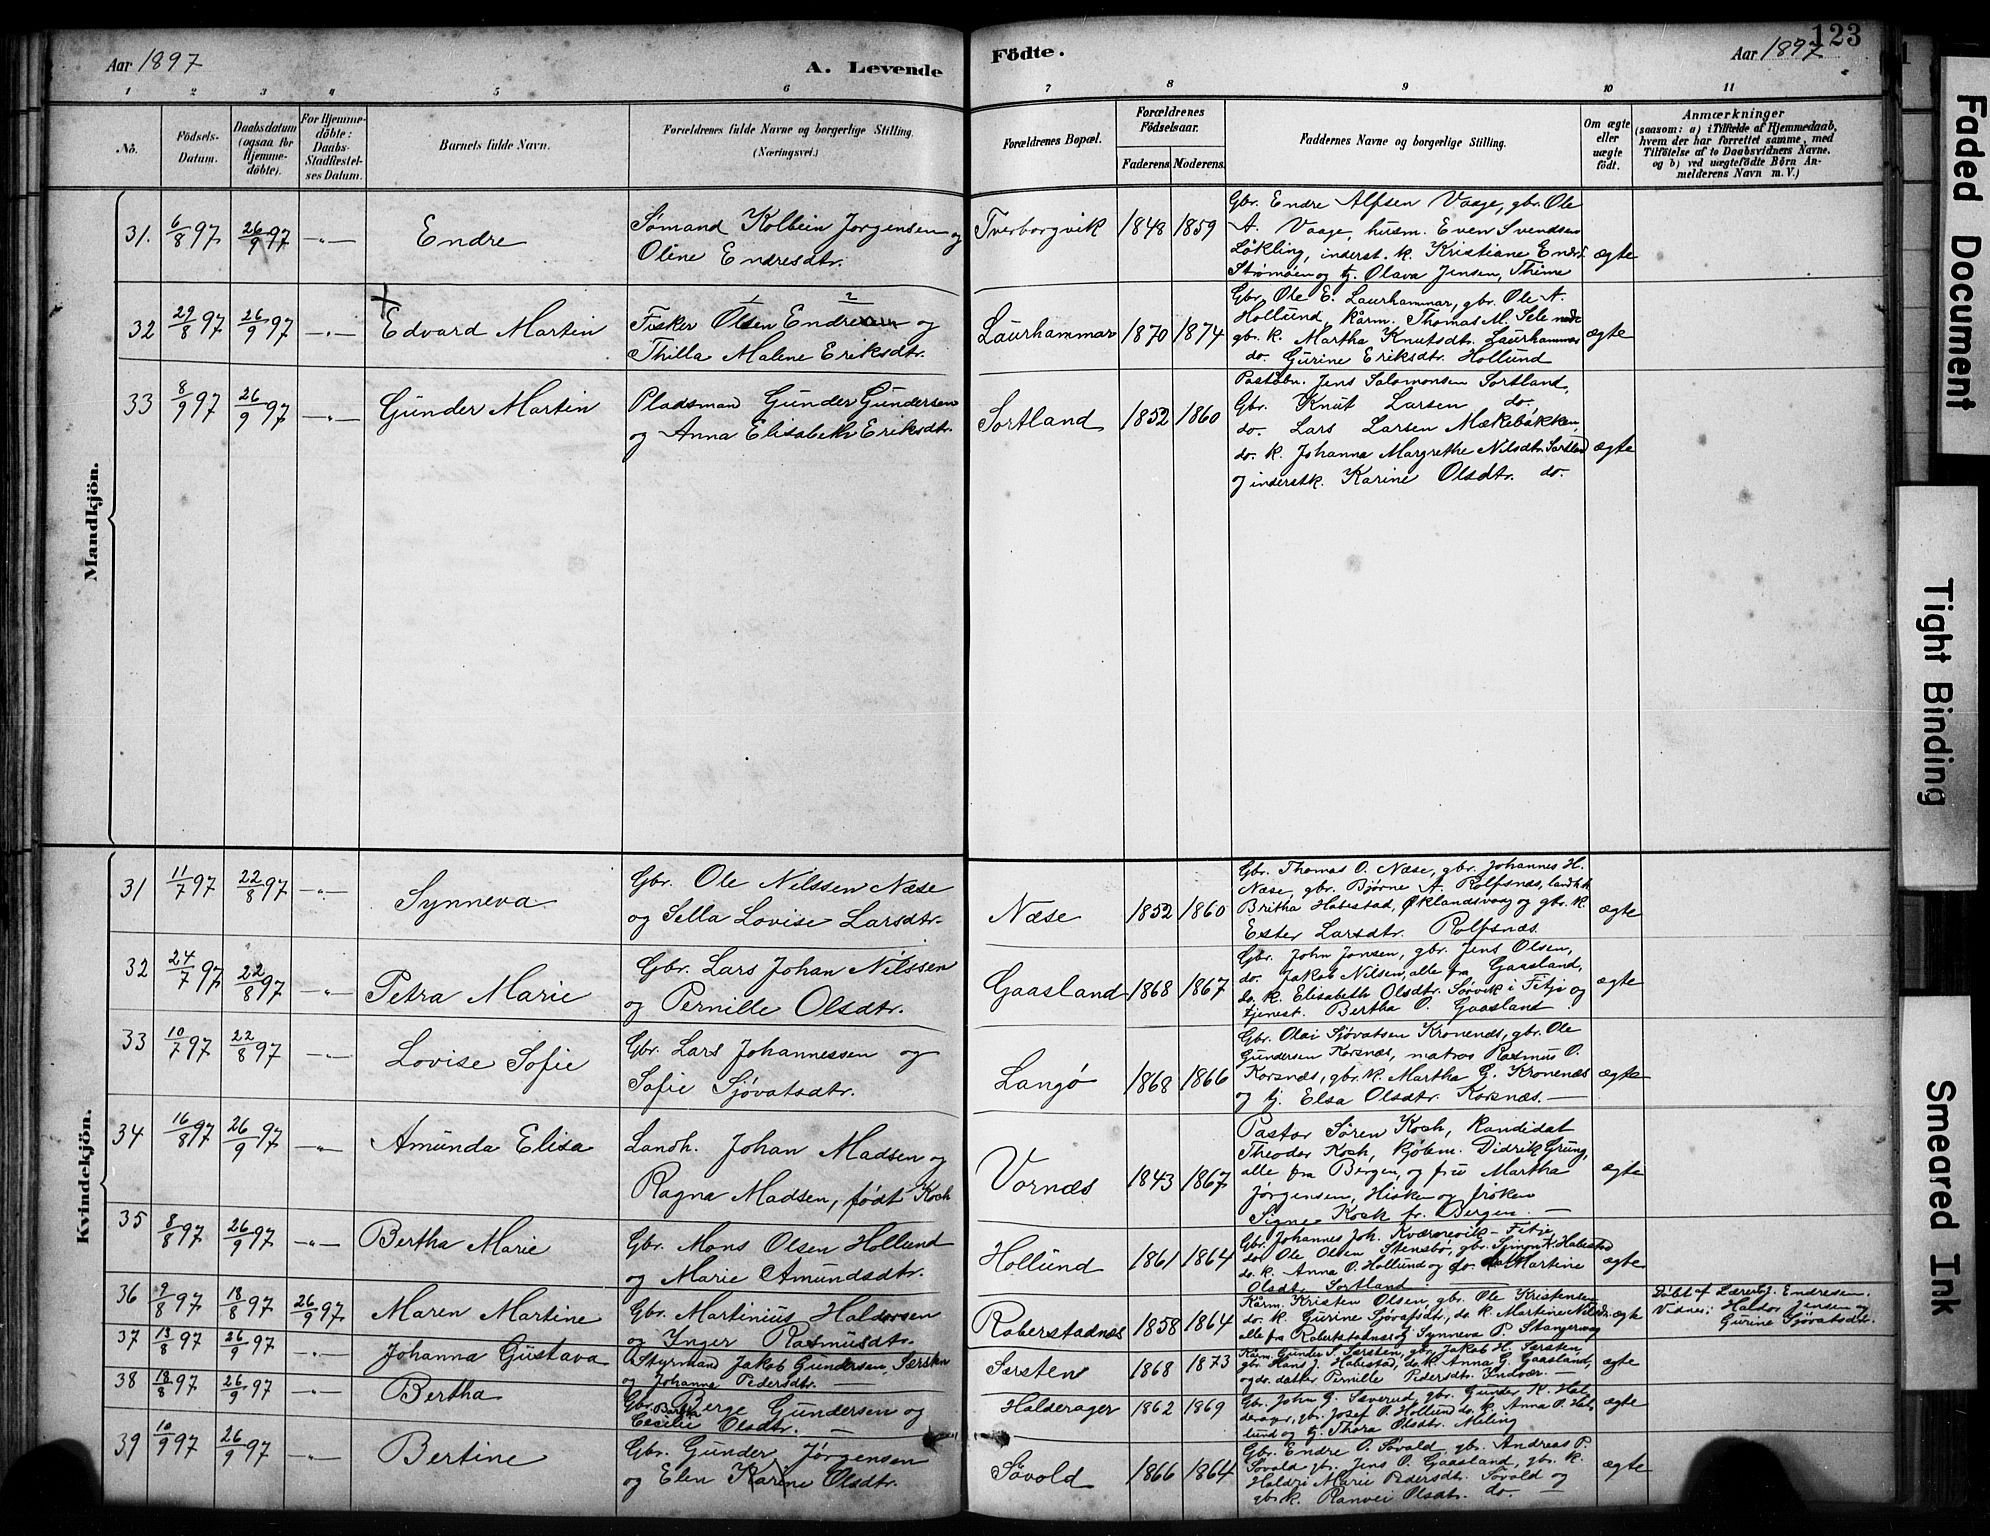 123
Aar 1897
A. Levende
Födte.
Aar 1897
1 2 3 4 5 6 7 8 9 10 11
No.
Födsels-Datum.
Daabsdatum (ogsaa for Hjemme-döbte).
For Hjemme-döbte: Daabs-Stadfæstel-ses Datum.
Barnets fulde Navn.
Forældrenes fulde Navne og borgerlige Stilling. (Næringsvei.)
Forældrenes Bopæl.
Forældrenes Födselsaar.
Faderens. Moderens.
Faddernes Navne og borgerlige Stilling.
Om ægte eller uægte födt.
Anmærkninger
(saasom: a) i Tilfælde af Hjemmedaab,
hvem der har forrettet samme, med
Tilföielse af to Daabsvidners Navne,
og b) ved uægtefödte Börn An-
melderens Navn m. V.)
Mandkjön.
31. 6/8 97 26/9 97 -"- Endre
Sømand Kolbein Jørgensen og
Oline Endresdtr.
Tverborgvik 1848 1859
Gbr. Endre Alfsen Vaage, gbr. Ole
A. Vaage, husm. Even Svendsen
Løkling, inderst. k. Kristiane Endr.
Strømøen og tj. Olava Jensen, Thime
ægte
32 29/8 97 26/9 97 -"- Edvard Martin
Fisker Olsen Endre og
Thilla Malene Eriksdtr.
Laurhammar 1870 1874
Gbr. Ole E. Laurhammar, gbr. Ole A.
Hollund, karm. Thomas M. Sele
gbr. k. Martha Knutsdtr. Laurhammar
do. Gurine Eriksdtr. Hollund
ægte
33 8/9 97 26/9 97 -"- Gunder Martin
Pladsmand Gunder Gundersen
og Anna Elisabeth Eriksdtr.
Sortland 1852 1860
Postaabn. Jens Salomonsen Sortland,
Gbr. Knut Larsen do.,
do. Lars Larsen Mækebakken,
do. k. Johanna Margrethe Nilsdtr. Sortland
og inderstk. Karine Olsdtr. do.
ægte
Kvindekjön.
31 11/7 97 22/8 97 -"- Synneva
Gbr. Ole Nilssen Næse
og Sella Lovise Larsdtr.
Næse 1852 1860
Gbr. Thomas O. Næse, gbr. Johannes H.
Næse, gbr. Bjørne A. Rolfsnæs, landh. k.
Britha Habestad, Øklandsvaag og gbr. k.
Ester Larsdtr. Rolfsnæs.
ægte
32 24/7 97 22/8 97 -"- Petra Marie
Gbr. Lars Johan Nilssen
og Pernille Olsdtr.
Gaasland 1868 1867
Gbr. John Jonsen, gbr. Jens Olsen,
do. Jakob Nilsen, alle fra Gaasland,
do. k. Elisabeth Olsdtr. Sørvik i Fitje og
tjenest. Bertha O. Gaasland
ægte
33 10/7 97 22/8 97 -"- Lovise Sofie
Gbr. Lars Johannessen og
Sofie Sjøvatsdtr.
Langø 1868 1866
Gbr. Olai Sjøvatsen Kronenæs, gbr. Ole
Gundersen Korsnæs, matros Rasmus O.
Korsnæs, gbr. k. Martha G. Kronenæs
og tj. Elsa Olsdtr. Korsnæs. —
ægte
34 16/8 97 26/9 97 -"- Amunda Elisa
Landh. Johan Madsen og
Ragna Madsen, født Koch
Vornæs 1843 1867
Pastor Søren Koch, Kandidat
Theodor Koch, Kjøbm. Didrik Grung,
alle fra Bergen, og fru Martha
Jørgensen, Hisken og frøken
Signe Koch fr. Bergen. —
ægte
35 8/8 97 26/9 97 -"- Bertha Marie
Gbr. Mons Olsen Hollund
og Marie Amundsdtr.
Hollund 1861 1864
Gbr. Johannes Joh. Kværnevik - Fitje,
do. Ole Olsen Stensbø, gbr. Simon K. Habestad
do. k. Anna O. Hollund og do. Martine
Olsdt. Sortland
ægte
36 9/8 97 18/8 97 26/9 97 Maren Martine
Gbr. Martinius Haldorsen
og Inger Rasmusdtr.
Roberstadnæs 1858 1864
Karm. Kristen Olsen, gbr. Ole Kristensen,
do. k. Gurine Sjøvatsdtr, do. k. Martine Nilsdtr.
alle fra Roberstadnæs og Synneva P. Stangervag
ægte
Døbt af Lærer J. Endresen.
Vidner: Haldor Jensen og
Gurine Sjøvatsdtr.
37 13/8 97 26/9 97 -"- Johanna Gustava
Styrmand Jakob Gundersen, Særsten
og Johanne Pedersdtr.
Særsten 1868 1873
Karm. Gunder S. Særsten, gbr. Jakob H. Særsten,
gbr. Hans J. Habestad, do. k. Anna G. Gaasland,
og do. datter Pernille Pedersdtr. Indvær. —
ægte
38 18/8 97 26/9 97 -"- Bertha
Gbr. Børge Gundersen og
Cecilie Olsdtr. —
Halderager 1862 1869
Gbr. John G. Sæverud, gbr. Gunder K. Hal-
derager, gbr. Josef O. Hollund do. k. Anna O. Hol-
lund og tj. Thora Olsdtr. Meling
ægte
39 10/9 97 26/9 97 -"- Bertine
Gbr. Gunder Jørgensen
og Elen Karine Olsdtr.
Søvold 1866 1864
Gbr. Endre O. Søvold, gbr. Andreas P.
Søvold gbr. Jens O. Gaasland, gbr. k.
Haldri Marie Pedersdtr. Søvold og
gbr. k. Ranvei Olsdtr. do. —
ægte
Faded Document
Tight Binding
Smeared Ink